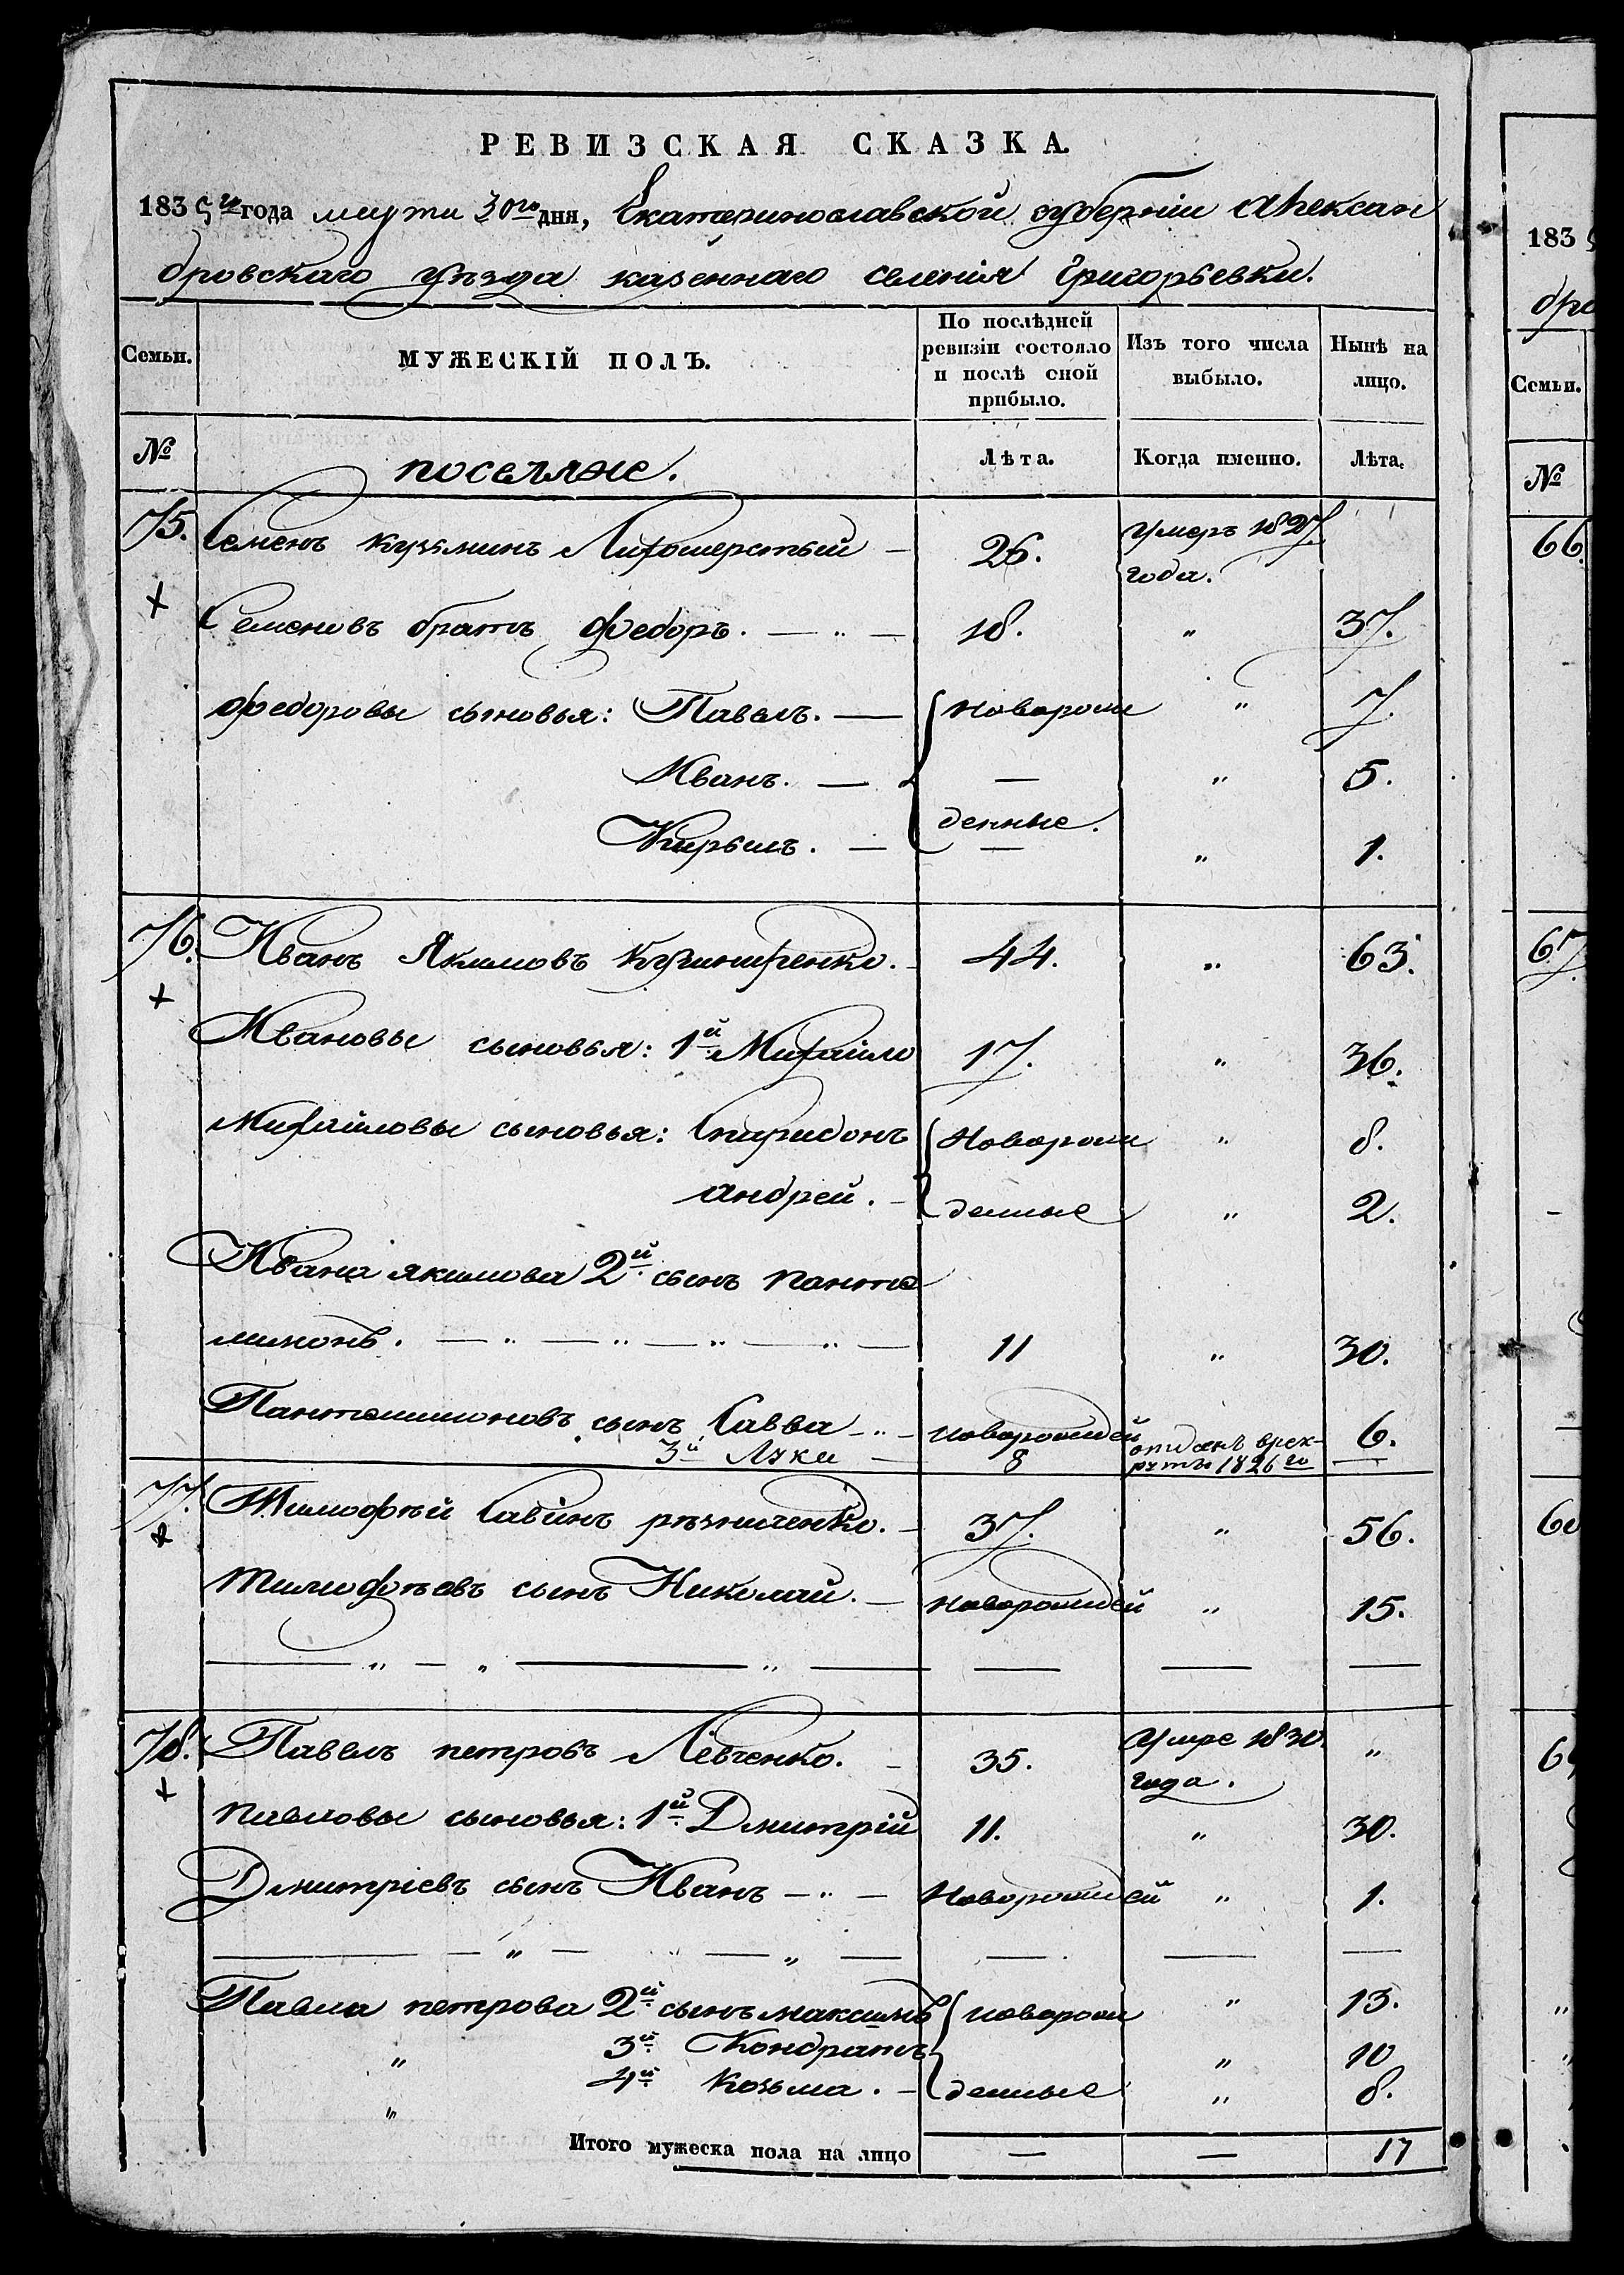 РЕВИЗСКАЯ СКАЗКА.
1835го года марта 30го дня, Екатеринославской губерніи Алексан
дровскаго уѣзда казеннаго селенія Григорьевки.
Семьи. МУЖЕСКІЙ ПОЛЪ. По послѣдней ревизіи состояло и послѣ оной прибыло. Изъ того числа выбыло. Нынѣ на лицо.
№ поселяне. Лѣта. Когда именно. Лѣта.
75. Семенъ Кузьминъ Лихошерстый — 26. Умеръ 1827.
года.
Семеновъ братъ Федоръ. — „ — 18. „ 37.
Федоровы сыновья: Павелъ. — новорож „ 7.
Иванъ. — — „ 5.
Кирылъ. — денные. — „ 1.
76. Иванъ Якимовъ — 44. „ 63.
Ивановы сыновья: 1й Михайло 17. „ 36.
Михайловы сыновья: Спиридонъ новорож „ 8.
Андрей. — денные „ 2.
Ивана Якимова 2й сынъ Панте
лимонъ. — „ — „ — „ — „ — 11 „ 30.
Пантелимоновъ сынъ Савва — „ — новорожден 6.
3й Лука — 8 отданъ врек-
рути 1826го —
77. Тимофѣй Савинъ Рѣзниченко. — 37. „ 56.
Тимофѣевъ сынъ Николай. — новорожден „ 15.
— „ — „ — „ — — — —
78. Павелъ Петровъ Левченко. — 35. Умре 1830. „
года.
Павловы сыновья: 1й Дмитрій 11. „ 30.
Дмитріевъ сынъ Иванъ — „ — новорожден „ 1.
— — „ — „ — „ — — — —
Павла Петрова 2й сынъ Максимъ новорож „ 13.
„ 3й Кондратъ „ 10
„ 4й Козьма. — денные „ 8.
Итого мужеска пола на лицо — — 17
183
дро
Семьи.
№
66.
67.